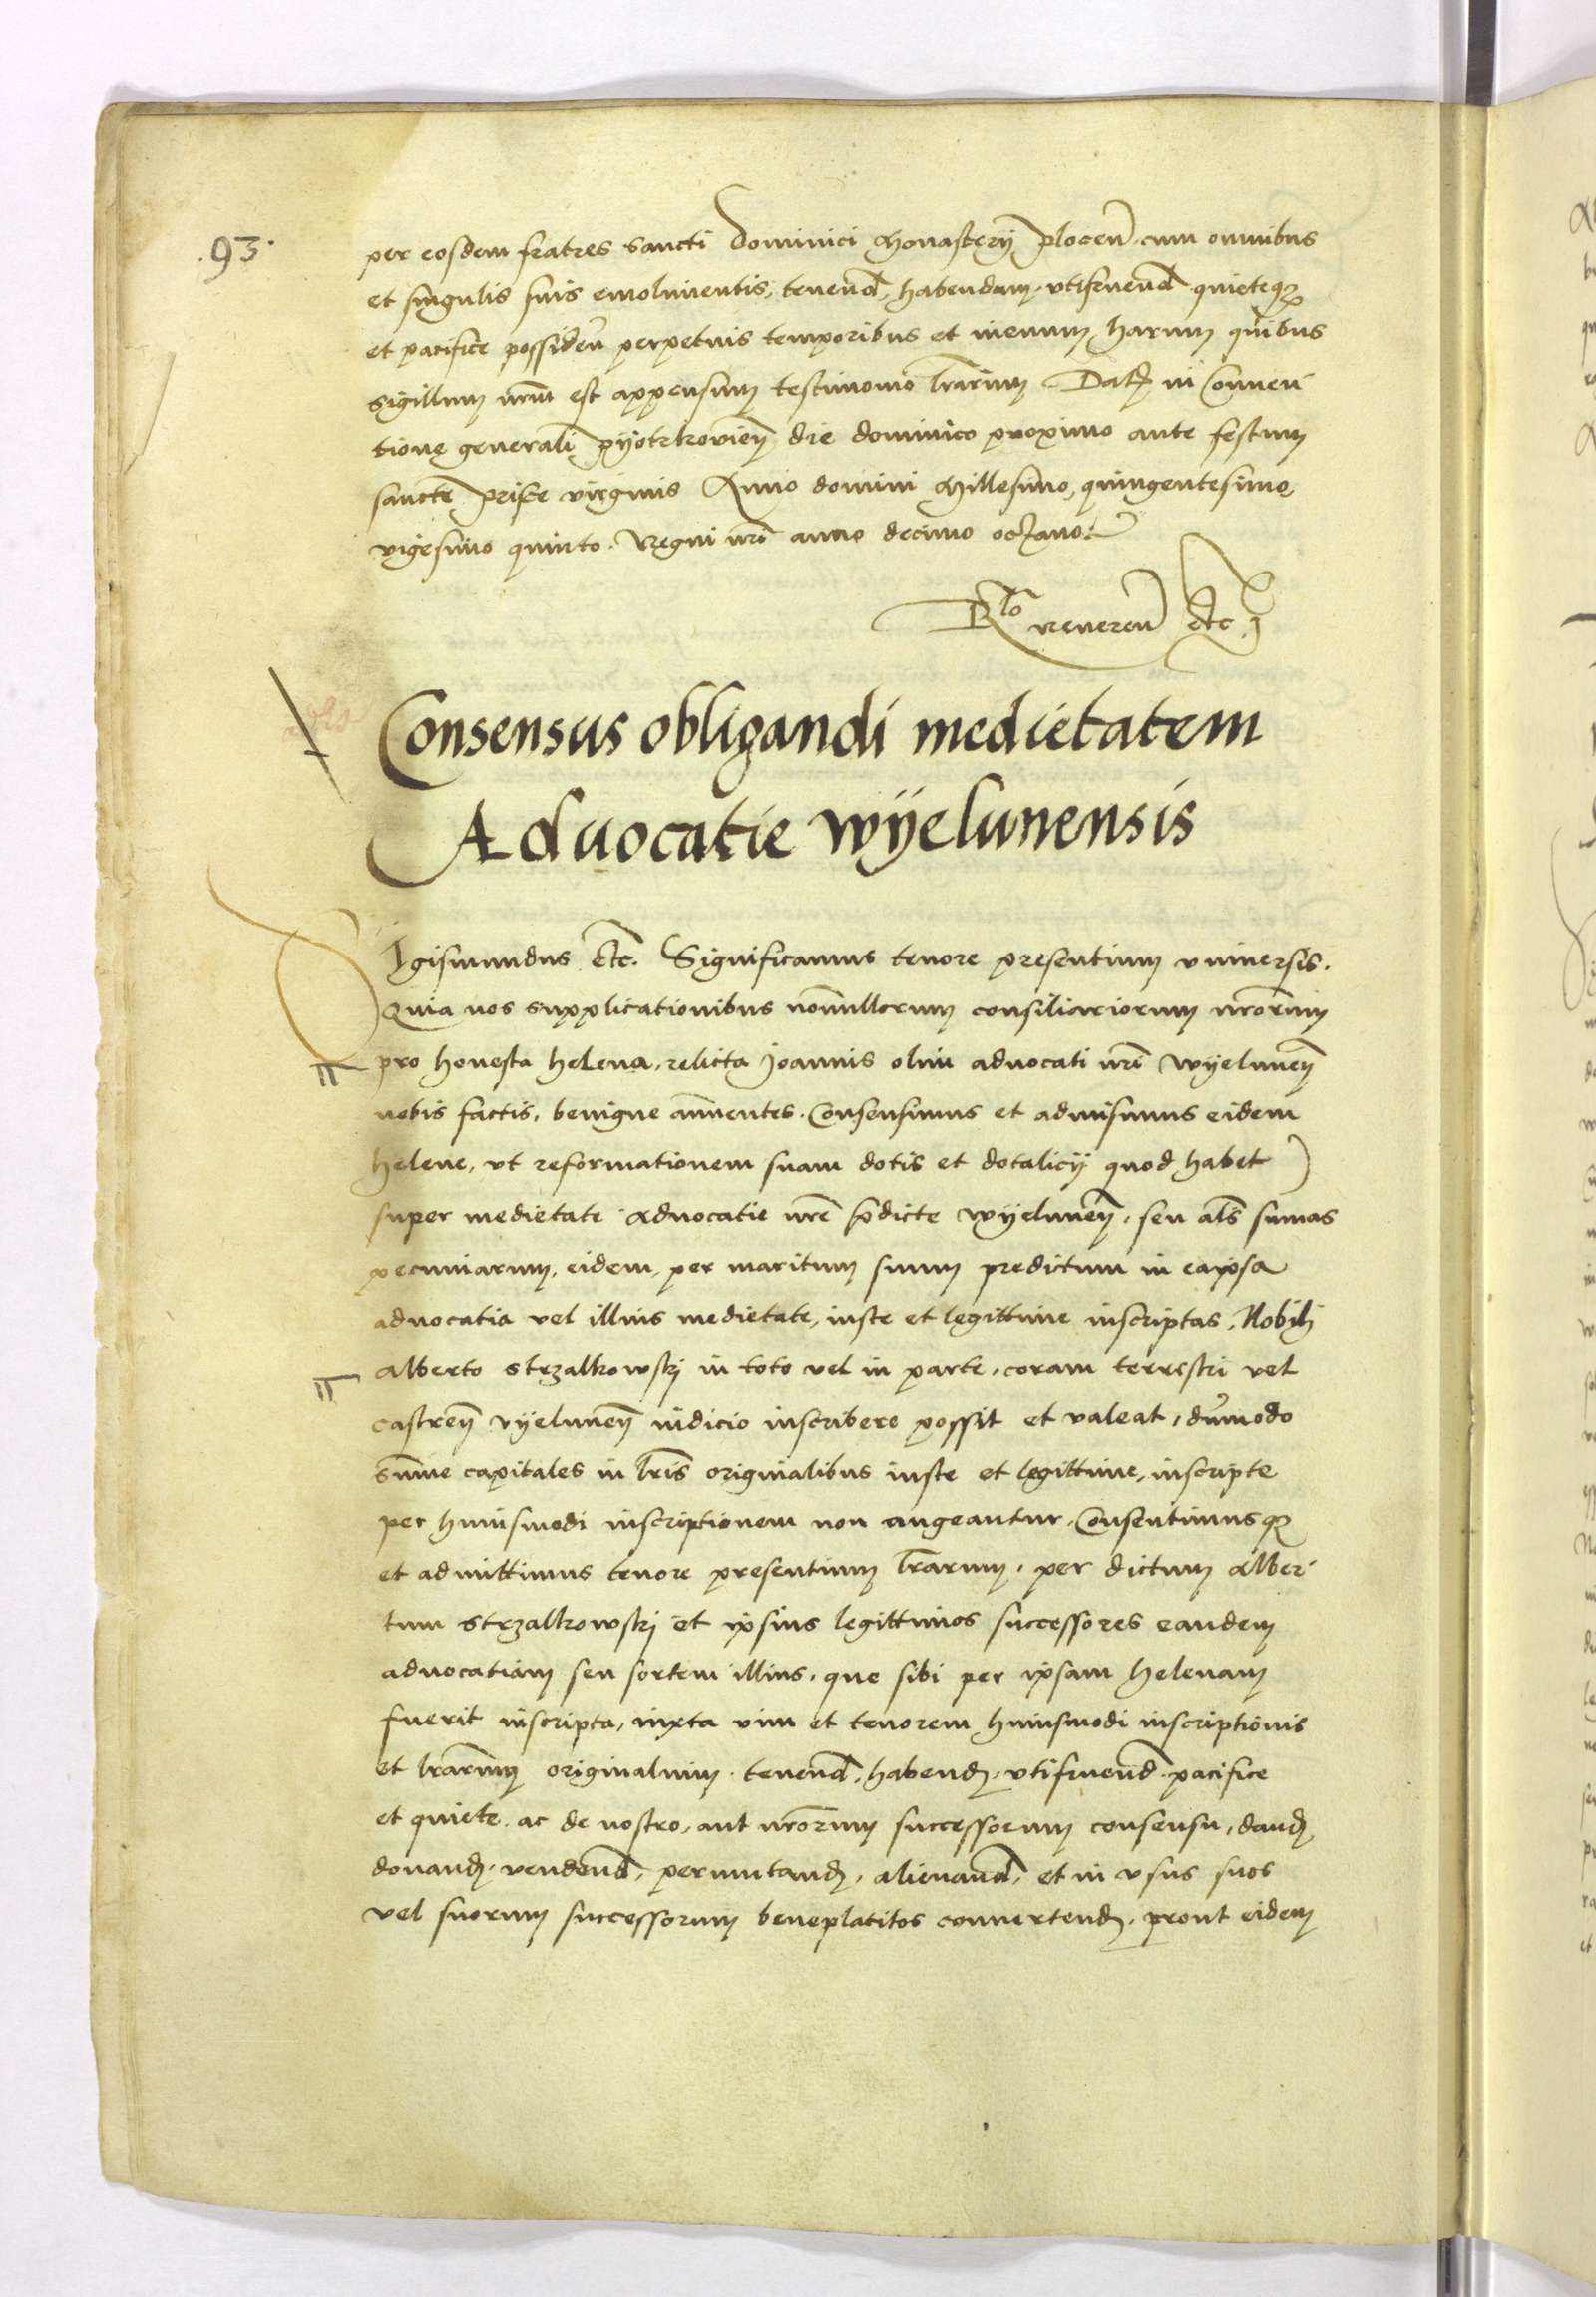 .93.
per eosdem fratres sancti Dominici Monasterÿ plocen̄. cum omnibus
et singulis suis emolumentis, tenend̄, habendum, vtifruend̄ quieteqȝ
et pacifice possiden̄ perpetuis temporibus et in euum, harum quibus
sigillum nr̄m est appensum testimonio lr̄arum Datꝫ in Conuen
tione generali pÿotrkovien̄ die dominico proximo ante festum
sancte prisce virginis Anno domini Millesimo, quingentesimo,
vigesimo quinto. Regni nr̄i anno decimo octauo:
Rlo reueren̄ etc
Consensus obligandi medietatem
Aduocatie wÿelunensis
Sigismundus etc. Significamus tenore presentium vniuersis.
Quia nos supplicationibus nōnullorum consiliariorum nr̄orum
pro honesta helena, relicta Joannis olim aduocati nr̄i wÿelunen̄
nobis factis, benigne an̄uentes. Consensimus et admisimus eidem
helene, vt reformationem suam dotis et dotalicÿ quod habet
super medietate aduocatie nr̄e p̄dicte wÿelunen̄, seu al̄s sum̄as
pecuniarum, eidem, per maritum suum predictum in eaipsa
aduocatia vel illius medietate, iuste et legittime inscriptas, Nobili
Alberto strzalkowskj in toto vel in parte, coram terrestri vel
castren̄ vÿelunen̄ iudicio inscribere possit et valeat, dum̄odo
sum̄e capitales in lr̄is originalibus iuste et legittime, inscripte
per huiusmodi inscriptionem non augeantur. Consentimusqȝ
et admittimus tenore presentium lr̄arum, per dictum Alber
tum strzalkowskj et ipsius legittimos successores eandem
aduocatiam seu sortem illius, que sibi per ipsam helenam
fuerit inscripta, iuxta vim et tenorem huiusmodi inscriptionis
et lr̄arum originalium. tenend̄, habendꝫ, vtifruend̄ pacifice
et quiete. ac de nostro, aut nr̄orum successorum consensu, dandꝫ,
donandꝫ, vendend̄, permutandꝫ, alienand̄, et in vsus suos
vel suorum successorum beneplacitos conuertendꝫ, prout eidem